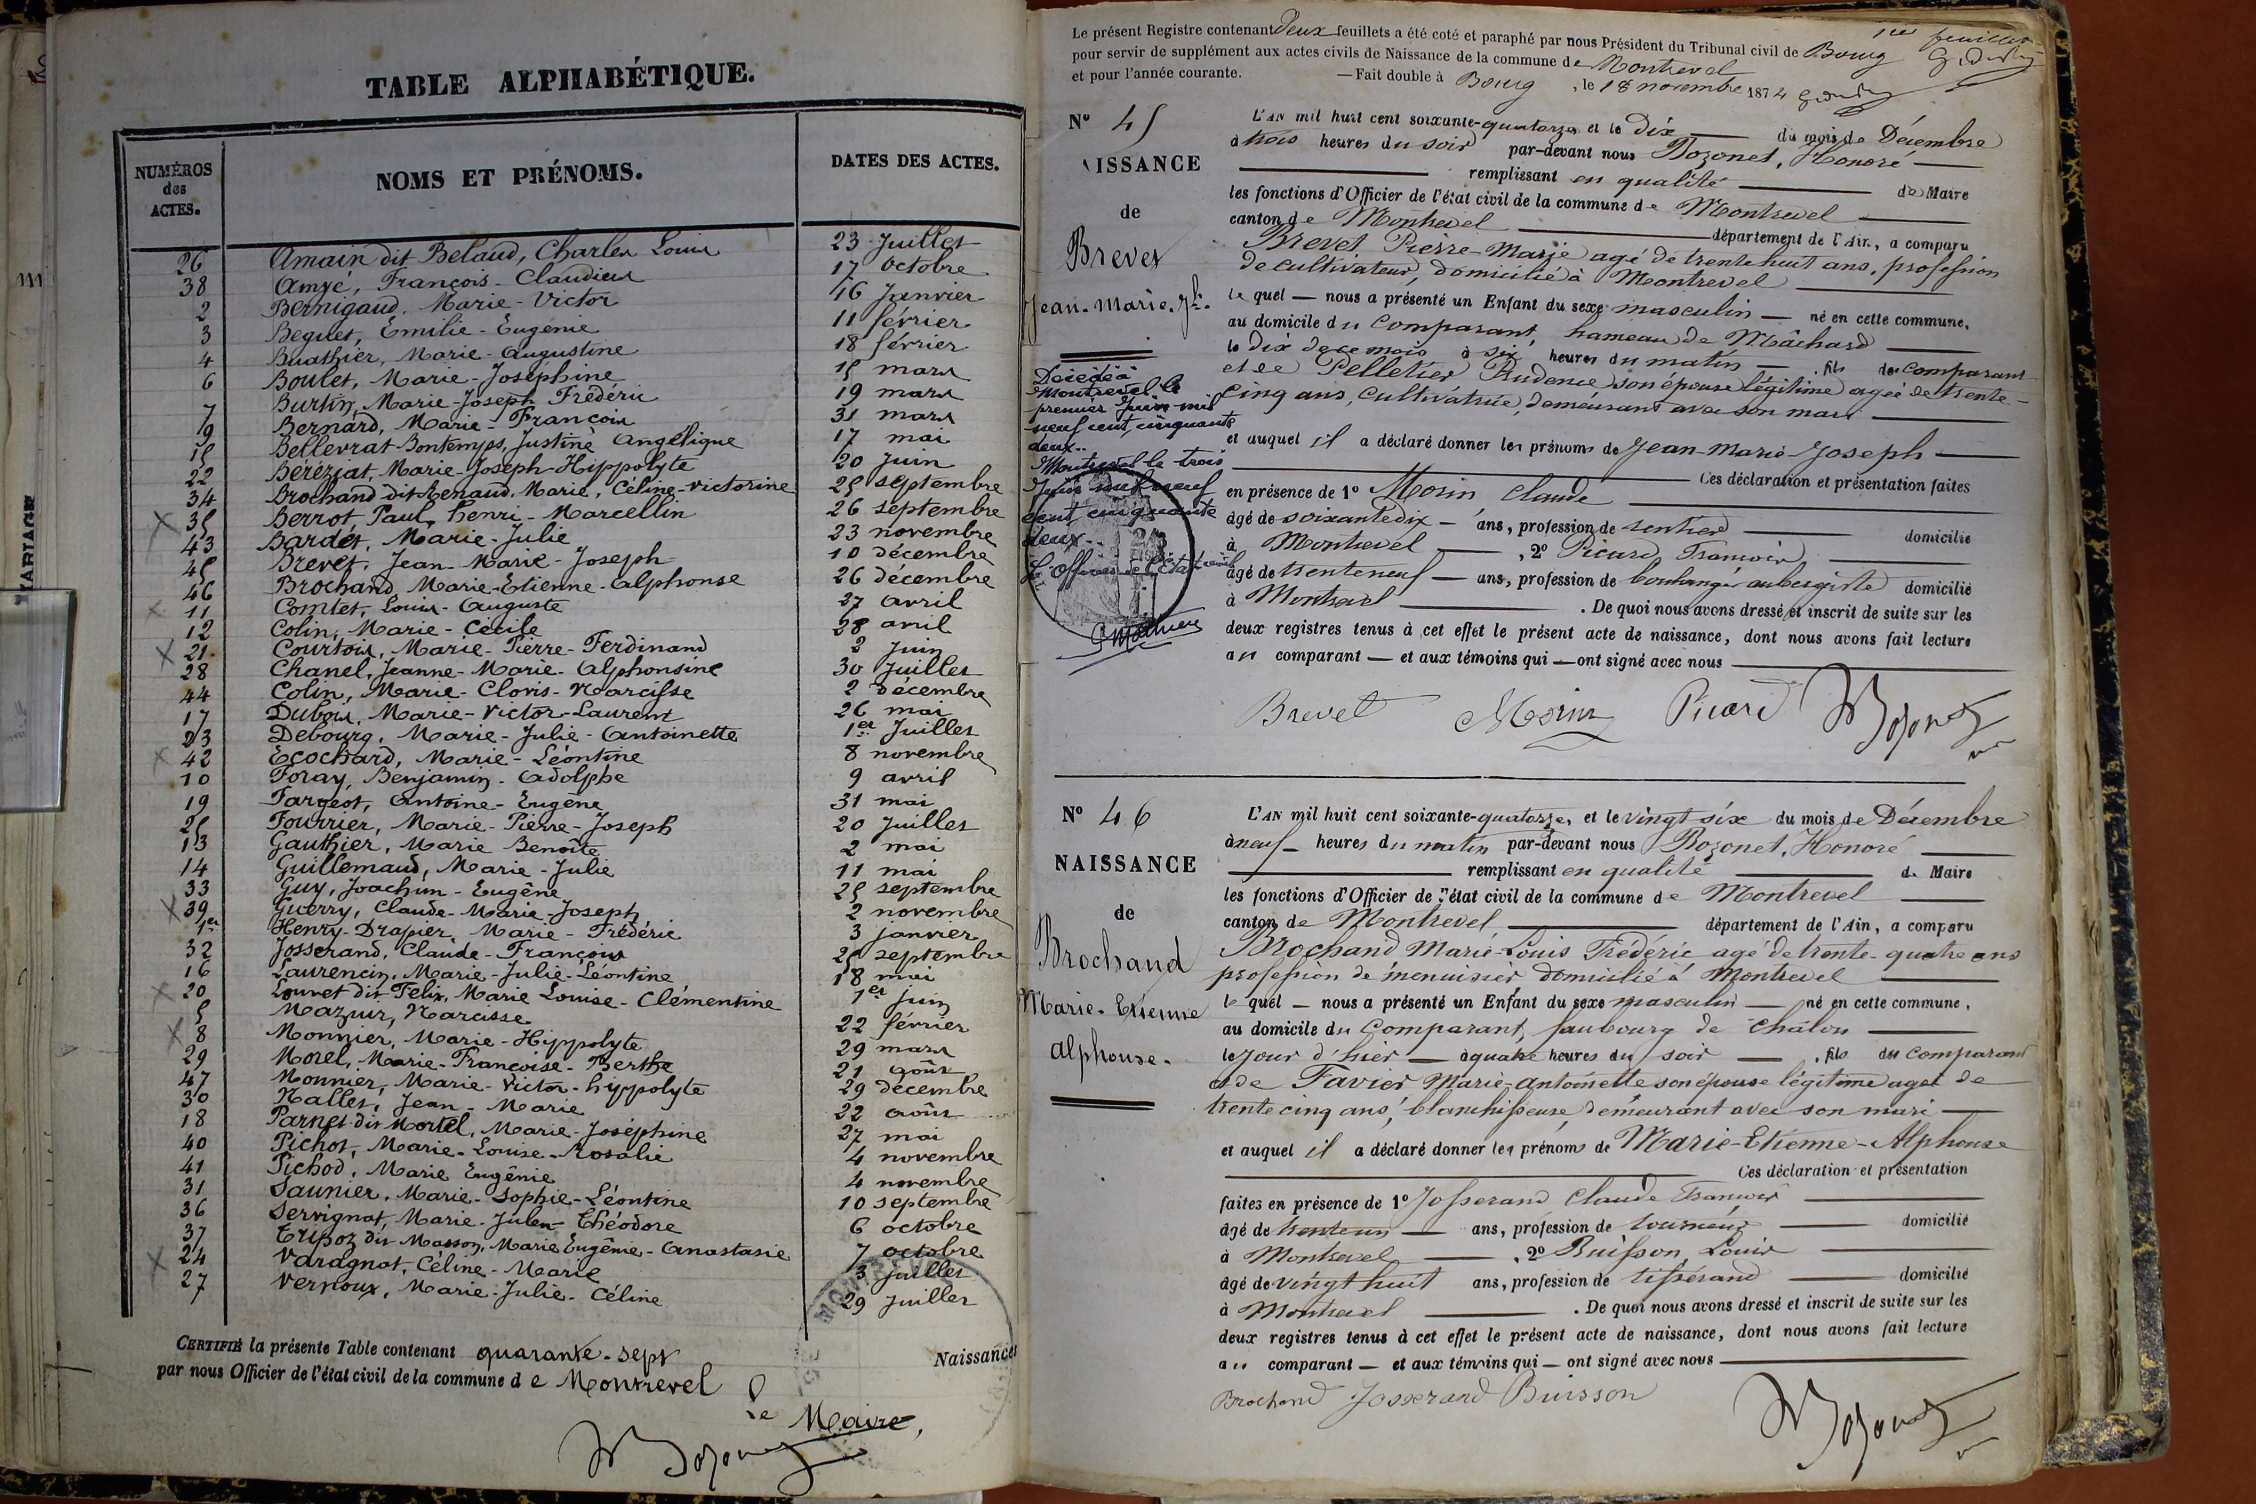 TABLE ALPHABÉTIQUE.
NUMÉROS des ACTES.
NOMS ET PRÉNOMS.
DATES DES ACTES.
26 Amain dit Belaud, Charles Louis 23 Juillet
38 Amyé, François-Claudius 17 octobre
2 Bernigaud, Marie-Victor 16 Janvier
3 Beguet, Emilie-Eugénie 11 février
4 Buathier, Marie-Augustine 18 février
6 Boulet, Marie-Joséphine 15 mars
7 Burtin, Marie-Joseph Frédéric 19 mars
9 Bernard, Marie-François 31 mars
15 Bellevrat-Bontemps, Justine Angélique 17 mai
22 Béréziat, Marie-Joseph-Hippolyte 20 Juin
34 Brochand dit Renaud, Marie, Céline-Victorine 25 septembre
35 Berrot, Paul, henri-Marcellin 26 septembre
43 Bardet, Marie-Julie 23 novembre
45 Brevet, Jean-Marie-Joseph 10 décembre
46 Brochand Marie-Etienne-Alphonse 26 décembre
11 Comtet, Louis-Auguste 27 avril
12 Colin, Marie-Cécile 28 avril
21 Courtois, Marie-Pierre-Ferdinand 2 Juin
28 Chanel, Jeanne-Marie-Alphonsine 30 Juillet
44 Colin, Marie-Clovis-Narcisse 2 décembre
17 Dubois, Marie-Victor-Laurent 26 mai
23 Debourg, Marie-Julie-Antoinette 1er Juillet
42 Ecochard, Marie-Léontine 8 novembre
10 Foray, Benjamin-Adolphe 9 avril
19 Fargeot, Antoine-Eugène 31 mai
25 Fourrier, Marie-Pierre-Joseph 20 Juillet
13 Gauthier, Marie Benoîte 2 mai
14 Guillemaud, Marie-Julie 11 mai
33 Guy, Joachim-Eugène 25 septembre
39 Guerry, Claude-Marie-Joseph 2 novembre
1er Henry-Drapier, Marie-Frédéric 3 janvier
32 Josserand, Claude-François 25 septembre
16 Laurencin, Marie-Julie-Léontine 18 mai
20 Louvet dit Felix, Marie Louise-Clémentine 1er juin
5 Mazuir, Narcisse 22 février
8 Monnier, Marie-Hippolyte 29 mars
29 Morel, Marie-Françoise-Berthe 21 août
47 Monnier, Marie-Victor-hippolyte 29 décembre
30 Nallet, Jean-Marie 22 août
18 Parnet dit Mortel, Marie-Joséphine 27 mai
40 Pichot, Marie-Louise-Rosalie 4 novembre
41 Pichod, Marie Eugénie 4 novembre
31 Saunier, Marie-Sophie-Léontine 10 septembre
36 Servignat, Marie-Jules-Théodore 6 octobre
37 Tripoz dit Masson, Marie Eugénie-Anastasie 7 octobre
24 Varagnat, Céline-Marie 3 Juillet
27 Vernoux, Marie-Julie-Céline 29 Juillet
CERTIFIÉ la présente Table contenant quarante-sept
par nous Officier de l'état civil de la commune de Montrevel
Naissances
Le Maire,
1er feuillet
Le présent Registre contenant Deux feuillets a été coté et paraphé par nous Président du Tribunal civil de Bourg
pour servir de supplément aux actes civils de Naissance de la commune de Montrevel
et pour l'année courante. — Fait double à Bourg, le 18 novembre 1874
N° 45
AISSANCE
de
Brevet
Jean-Marie-Jh.
Décédé à
Montrevel le
premier Juin mil
neuf cent cinquante
deux..
Montrevel le trois
Juin mil neuf
cent cinquante
deux..
L'Officier de l'état civil
L'AN mil huit cent soixante-quatorze, et le dix du mois de Décembre
à trois heures du soir par-devant nous Bozonet, Honoré
remplissant en qualité de Maire
les fonctions d'Officier de l'état civil de la commune de Montrevel
canton de Montrevel département de l'Ain, a comparu
Brevet Pierre-Marie agé de trente huit ans, profession
de cultivateur, domicilié à Montrevel
le quel — nous a présenté un Enfant du sexe masculin — né en cette commune,
au domicile du Comparant, hameau de Mâchard
le dix de ce mois à six heures du matin — , fils du comparant
et de Pelletier Prudence son épouse légitime agée de trente-
cinq ans, cultivatrice, demeurant avec son mari
et auquel il a déclaré donner les prénoms de Jean-Marie-Joseph
Ces déclaration et présentation faites
en présence de 1° Morin Claude
âgé de soixante dix — ans, profession de rentier domicilié
à Montrevel , 2° Picard François
âgé de trente neuf — ans, profession de boulanger aubergiste domicilié
à Montrevel . De quoi nous avons dressé et inscrit de suite sur les
deux registres tenus à cet effet le présent acte de naissance, dont nous avons fait lecture
au comparant — et aux témoins qui — ont signé avec nous
Brevet Morin Picard Bozonet
N° 46
NAISSANCE
de
Brochand
Marie-Etienne
Alphonse.
L'AN mil huit cent soixante-quatorze, et le vingt six du mois de Décembre
à neuf heures du matin par-devant nous Bozonet, Honoré
remplissant en qualité de Maire
les fonctions d'Officier de l'état civil de la commune de Montrevel
canton de Montrevel département de l'Ain, a comparu
Brochand Marie-Louis Frédéric agé de trente-quatre ans
profession de menuisier domicilié à Montrevel
le quel — nous a présenté un Enfant du sexe masculin — né en cette commune,
au domicile du Comparant, faubourg de Châlon
le jour d'hier — à quatre heures du soir — , fils du comparant
et de Favier Marie-Antoinette son épouse légitime agée de
trente cinq ans, blanchisseuse demeurant avec son mari
et auquel il a déclaré donner les prénoms de Marie-Etienne-Alphonse
Ces déclaration et présentation
faites en présence de 1° Josserand Claude François
âgé de trente un — ans, profession de tourneur domicilié
à Montrevel , 2° Buisson, Louis
âgé de vingt huit ans, profession de tisserand domicilié
à Montrevel . De quoi nous avons dressé et inscrit de suite sur les
deux registres tenus à cet effet le présent acte de naissance, dont nous avons fait lecture
au comparant — et aux témoins qui — ont signé avec nous
Brochand Josserand Buisson Bozonet